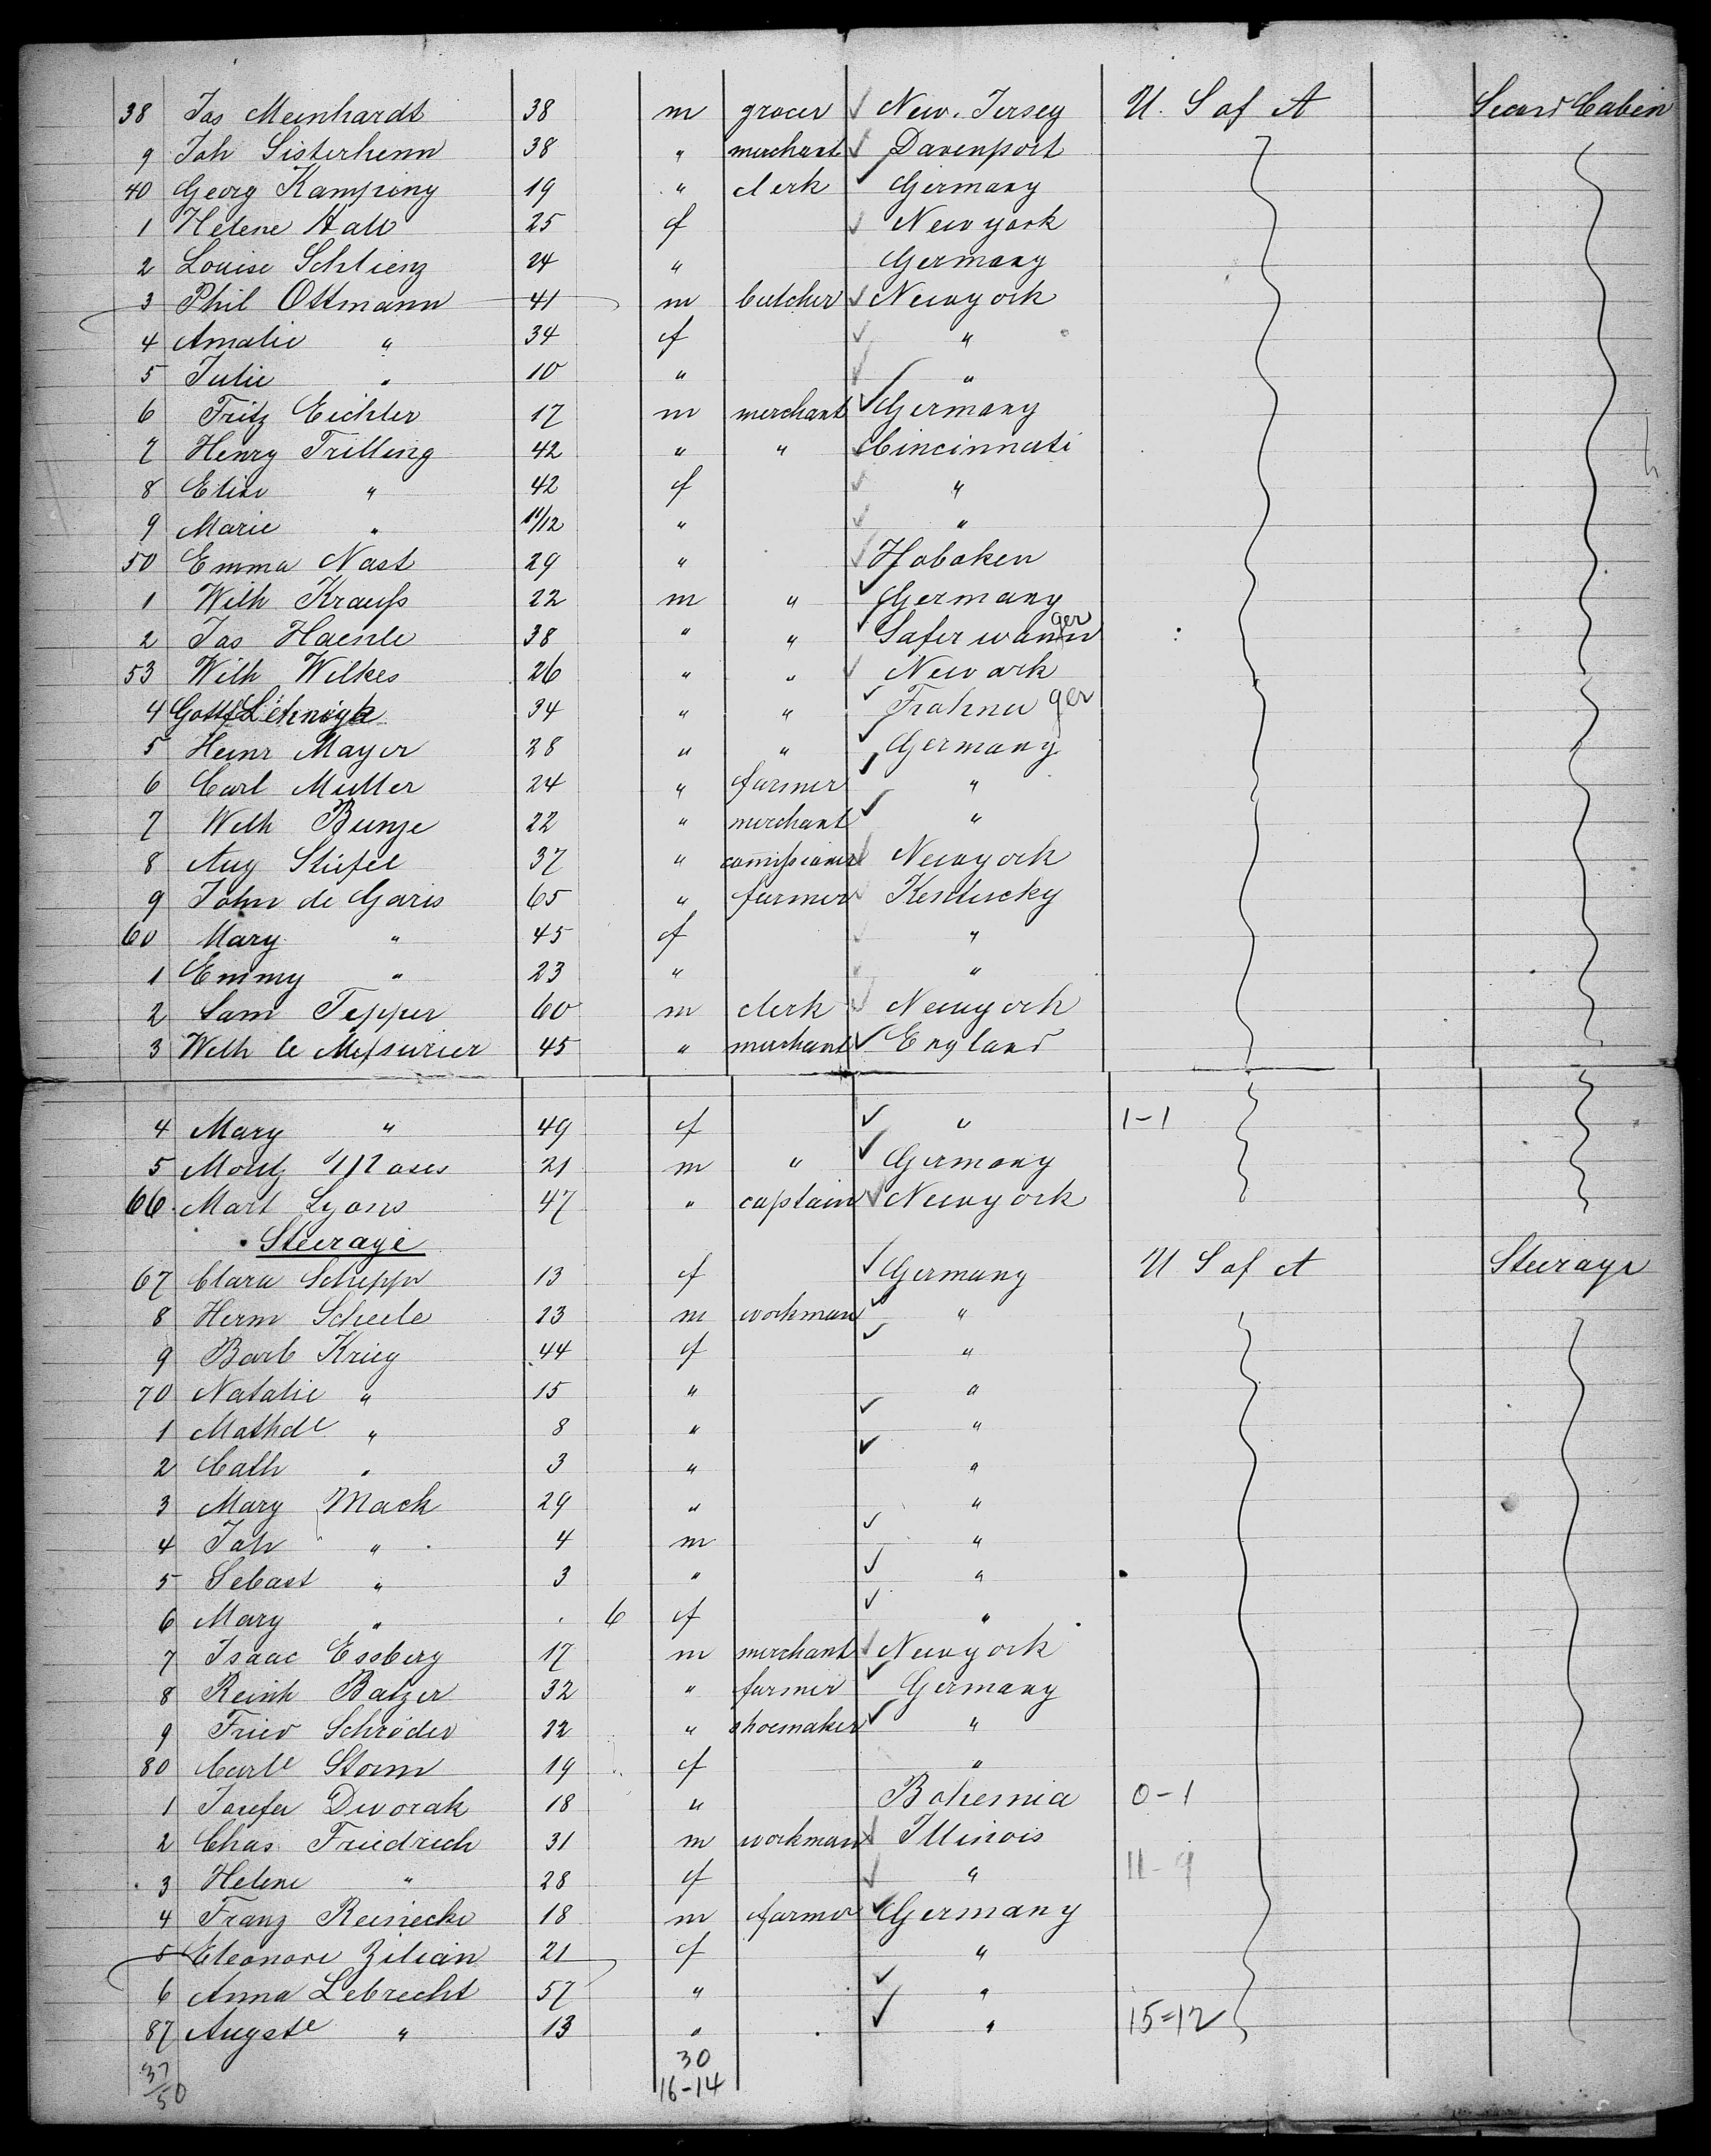 38 Jas Meinhardt 38 m grocer ✓ New. Jersey U. S of A Second Cabin
9 Joh Sisterhenn 38 " merchant ✓ Davenport
40 Georg Kamping 19 " clerk ✓ Germany
1 Helene Hall 25 f ✓ New york
2 Louise Schlienz 24 " Germany
3 Phil Ottmann 41 m butcher ✓ Newyork
4 Amalie " 34 f ✓ "
5 Julie " 10 " ✓ "
6 Fritz Eichler 17 m merchant ✓ Germany
7 Henry Trilling 42 " " ✓ Cincinnati
8 Elise " 42 f ✓ "
9 Marie " 11/12 " ✓ "
50 Emma Nast 29 " ✓ Hoboken
1 Wilh Krauss 22 m " ✓ Germany
2 Jas Haenle 38 " " ✓ ger
53 Wilh Wilkes 26 " " ✓ Newark
4 Gottf 34 " " ✓ ger
5 Heinr Mayer 28 " " ✓ Germany
6 Carl Muller 24 " farmer ✓ "
7 Wilh Bunje 22 " merchant ✓ "
8 Aug Stiefel 37 " ✓ Newyork
9 John de Garis 65 " farmer ✓ Kentucky
60 Mary " 45 f ✓ "
1 Emmy " 23 " ✓ "
2 Sam Tepper 60 m clerk ✓ Newyork
3 Wilh le Messurier 45 " merchant ✓ England
4 Mary " 49 f ✓ " 1-1
5 Moritz Moses 21 m " ✓ Germany
66. Mart Lyons 47 " captain ✓ Newyork
Steerage
67 Clara 13 f ✓ Germany U S of A Steerage
8 Herm Scheele 23 m workman ✓ "
9 Barb Krieg 44 f ✓ "
70 Natalie " 15 " "
1 Mathde " 8 " ✓ "
2 Cath " 3 " ✓ "
3 Mary Mack 29 " "
4 Joh " 4 m ✓ "
5 Sebast " 3 " ✓ "
6 Mary " 6 f ✓ "
7 Isaac Essberg 17 m merchant ✓ Newyork
8 Reinh Balzer 32 " farmer ✓ Germany
9 Fried Schröder 22 " shoemaker ✓ "
80 Carle Storm 19 f "
1 Josefa Dvorak 18 " Bohemia 0-1
2 Chas. Friedrich 31 m workman Illinois
3 Helene " 28 f ✓ " 11-9
4 Franz Reinecke 18 m farmer ✓ Germany
5 Eleonore Zilian 21 f "
6 Anna Lebrecht 57 " ✓ "
87 Augste " 13 " ✓ " 15=12
37/50 30
16-14